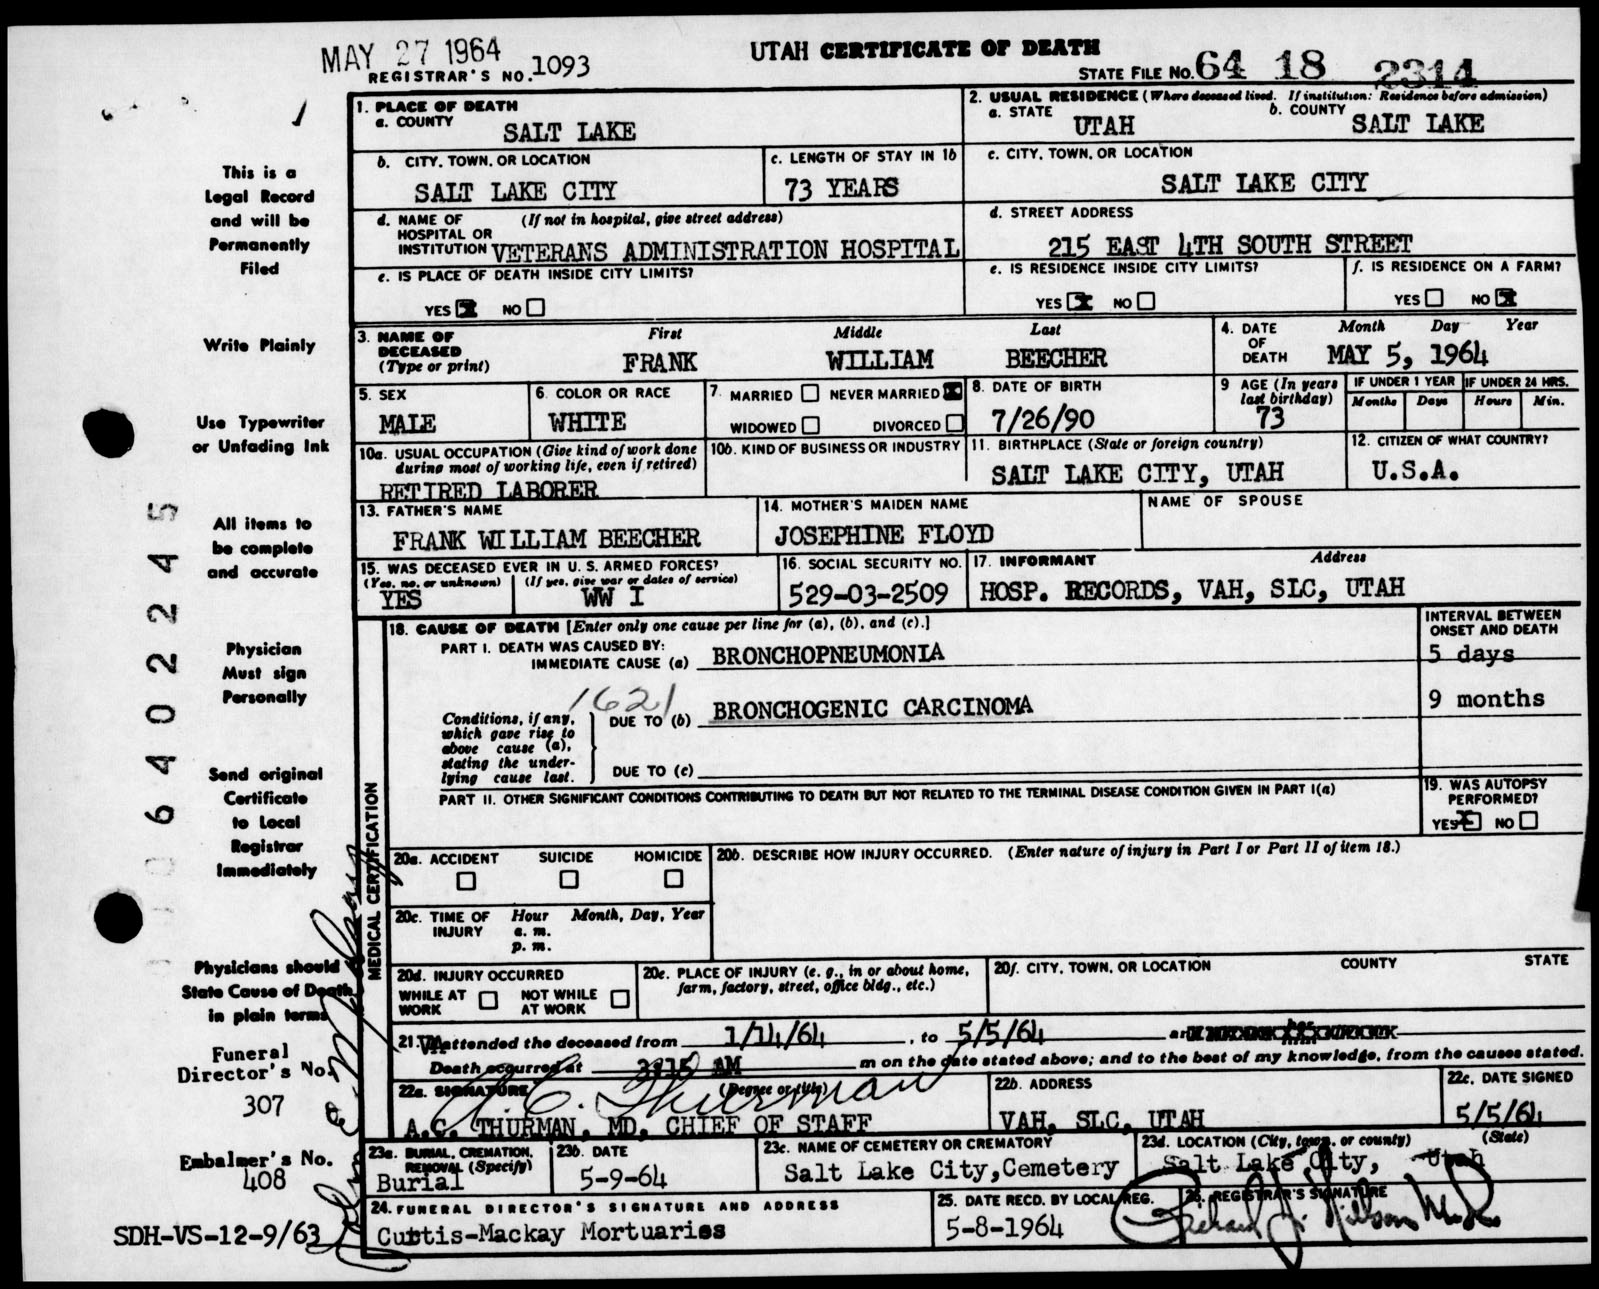 MAY 27 1964
UTAH CERTIFICATE OF DEATH
REGISTRAR'S NO. 1093
STATE FILE NO. 64 18 2314
1. PLACE OF DEATH
a. COUNTY
SALT LAKE
2. USUAL RESIDENCE (Where deceased lived. If institution: Residence before admission)
a. STATE UTAH b. COUNTY SALT LAKE
b. CITY, TOWN, OR LOCATION
SALT LAKE CITY
c. LENGTH OF STAY IN 1b
73 YEARS
c. CITY, TOWN, OR LOCATION
SALT LAKE CITY
d. NAME OF (If not in hospital, give street address)
HOSPITAL OR
INSTITUTION VETERANS ADMINISTRATION HOSPITAL
d. STREET ADDRESS
215 EAST 4TH SOUTH STREET
e. IS PLACE OF DEATH INSIDE CITY LIMITS?
YES X NO
e. IS RESIDENCE INSIDE CITY LIMITS?
YES X NO
f. IS RESIDENCE ON A FARM?
YES NO X
3. NAME OF
DECEASED
(Type or print)
First Middle Last
FRANK WILLIAM BEECHER
4. DATE
OF
DEATH
Month Day Year
MAY 5, 1964
5. SEX
MALE
6. COLOR OR RACE
WHITE
7. MARRIED NEVER MARRIED X
WIDOWED DIVORCED
8. DATE OF BIRTH
7/26/90
9 AGE (In years
last birthday)
73
IF UNDER 1 YEAR IF UNDER 24 HRS.
Months Days Hours Min.
10a. USUAL OCCUPATION (Give kind of work done
during most of working life, even if retired)
RETIRED LABORER
10b. KIND OF BUSINESS OR INDUSTRY
11. BIRTHPLACE (State or foreign country)
SALT LAKE CITY, UTAH
12. CITIZEN OF WHAT COUNTRY?
U.S.A.
13. FATHER'S NAME
FRANK WILLIAM BEECHER
14. MOTHER'S MAIDEN NAME
JOSEPHINE FLOYD
NAME OF SPOUSE
15. WAS DECEASED EVER IN U. S. ARMED FORCES?
(Yes, no, or unknown) (If yes, give war or dates of service)
YES WW I
16. SOCIAL SECURITY NO.
529-03-2509
17. INFORMANT Address
HOSP. RECORDS, VAH, SLC, UTAH
MEDICAL CERTIFICATION
18. CAUSE OF DEATH [Enter only one cause per line for (a), (b), and (c).]
PART I. DEATH WAS CAUSED BY:
IMMEDIATE CAUSE (a) BRONCHOPNEUMONIA
INTERVAL BETWEEN
ONSET AND DEATH
5 days
1621
Conditions, if any,
which gave rise to
above cause (a),
stating the under-
lying cause last.
DUE TO (b) BRONCHOGENIC CARCINOMA
9 months
DUE TO (c)
PART II. OTHER SIGNIFICANT CONDITIONS CONTRIBUTING TO DEATH BUT NOT RELATED TO THE TERMINAL DISEASE CONDITION GIVEN IN PART I(a)
19. WAS AUTOPSY
PERFORMED?
YES X NO
20a. ACCIDENT SUICIDE HOMICIDE
20b. DESCRIBE HOW INJURY OCCURRED. (Enter nature of injury in Part I or Part II of item 18.)
20c. TIME OF Hour Month, Day, Year
INJURY a. m.
p. m.
20d. INJURY OCCURRED
WHILE AT NOT WHILE
WORK AT WORK
20e. PLACE OF INJURY (e. g., in or about home,
farm, factory, street, office bldg., etc.)
20f. CITY, TOWN, OR LOCATION COUNTY STATE
21. VA attended the deceased from 1/14/64, to 5/5/64
Death occurred at 3:15 AM m on the date stated above; and to the best of my knowledge, from the causes stated.
22a. SIGNATURE (Degree or title)
A. C. Thurman
A.C. THURMAN, MD, CHIEF OF STAFF
22b. ADDRESS
VAH, SLC, UTAH
22c. DATE SIGNED
5/5/64
23a. BURIAL, CREMATION,
REMOVAL (Specify)
Burial
23b. DATE
5-9-64
23c. NAME OF CEMETERY OR CREMATORY
Salt Lake City, Cemetery
23d. LOCATION (City, town, or county) (State)
Salt Lake City, Utah
24. FUNERAL DIRECTOR'S SIGNATURE AND ADDRESS
Curtis-Mackay Mortuaries
25. DATE RECD. BY LOCAL REG.
5-8-1964
26. REGISTRAR'S SIGNATURE
This is a
Legal Record
and will be
Permanently
Filed
Write Plainly
Use Typewriter
or Unfading Ink
All items to
be complete
and accurate
Physician
Must sign
Personally
Send original
Certificate
to Local
Registrar
Immediately
Physicians should
State Cause of Death
in plain terms
Funeral
Director's No.
307
Embalmer's No.
408
SDH-VS-12-9/63
6402245